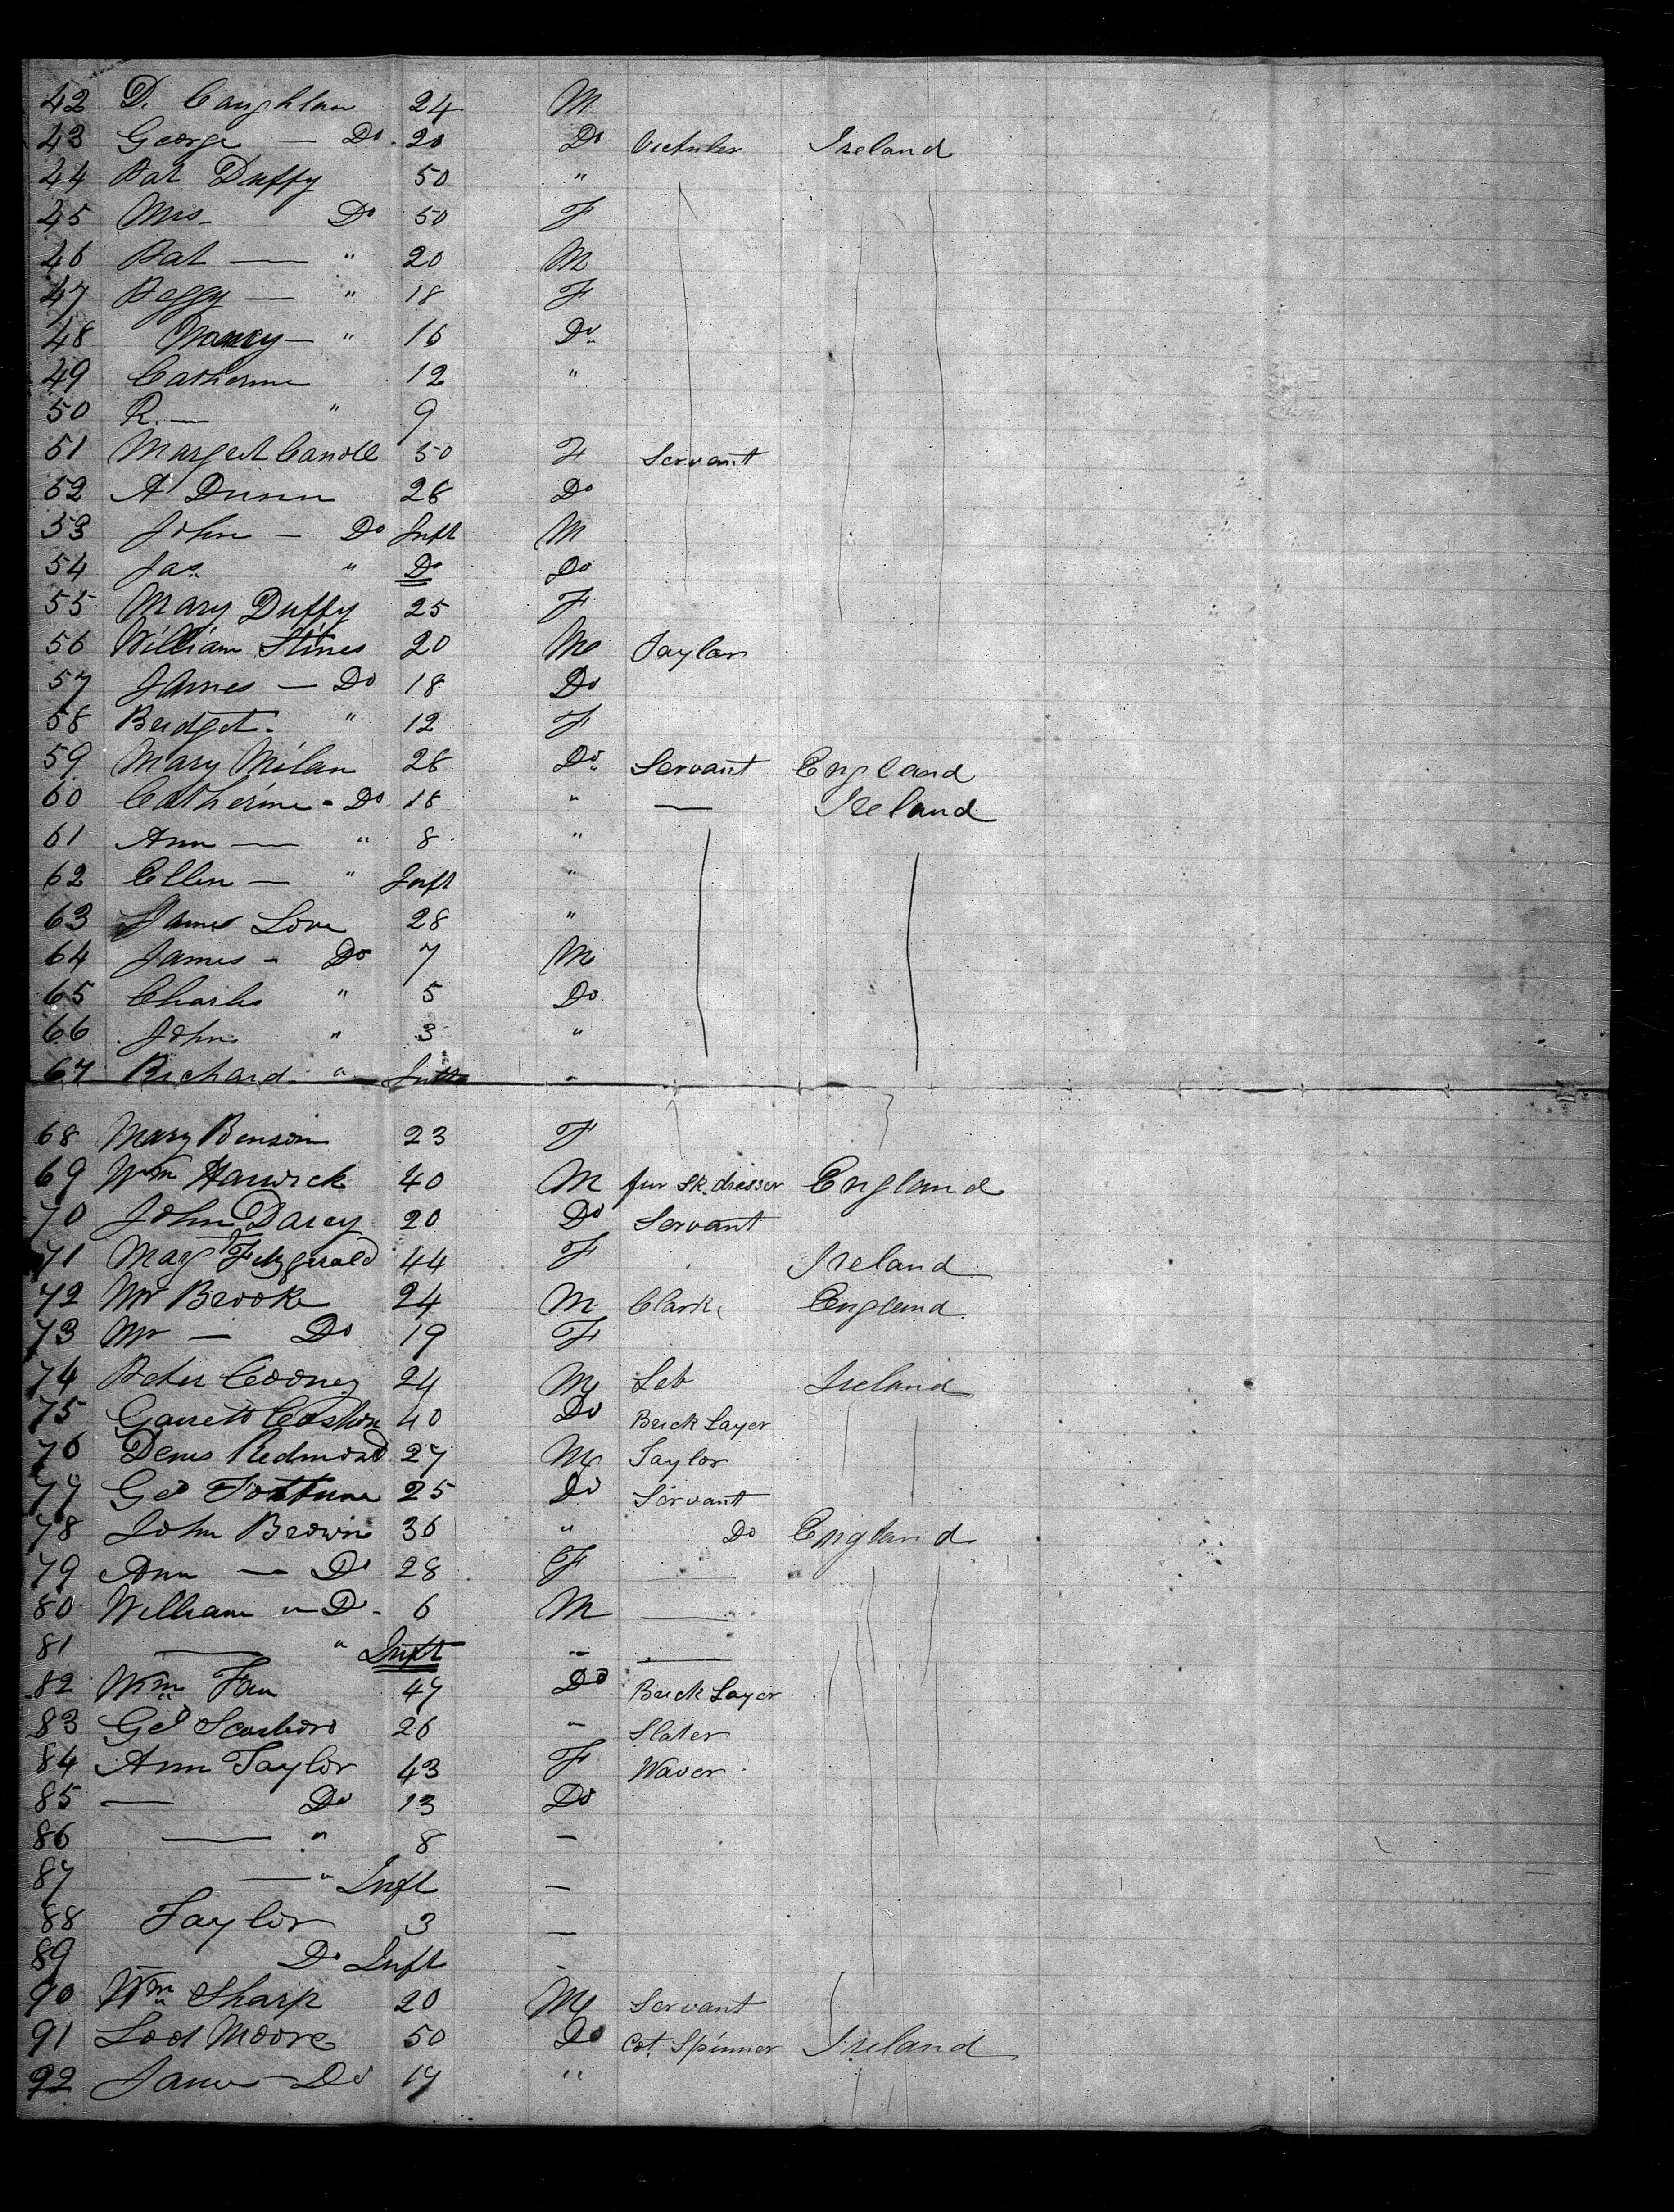 42 D. Caughlan 24 M
43 George — Do. 20 Do Victuler Ireland
44 Pat Duffy 50 "
45 Mrs - Do 50 F
46 Pat — " 20 M
47 Peggy — " 18 F
48 Nancy — " 16 Do
49 Catherine 12 "
50 R. — " 9
51 Margret 50 F Servant
52 A Dunn 28 Do
53 John — Do Inft M
54 Jas " Do Do
55 Mary Duffy 25 F
56 William Stines 20 M Taylor
57 James — Do 18 Do
58 Bridget. " 12 F
59 Mary Milan 28 Do Servant England
60 Catherine - Do 18 " — Ireland
61 Ann — " 8 "
62 Ellen — " Inft "
63 James Love 28 "
64 James - Do 7 M
65 Charles " 5 Do
66 John " 3 "
67 Richard " Inft "
68 Mary Benson 23 F
69 Wm Harwick 40 M fur sk. dresser England
70 John Darcy 20 Do Servant
71 Mary Fitzgerald 44 F Ireland
72 Mr Brooke 24 M Clark England
73 Mr — Do 19 F
74 Peter Cooney 24 M Leb Ireland
75 Garrett 40 Do Brick Layer
76 Denis Redmond 27 M Taylor
77 Geo Fortune 25 Do Servant
78 John Brown 36 " Do England
79 Ann — Do 28 F —
80 William " Do - 6 M —
81 — " Inft " —
82 Wm 47 Do Brick Layer
83 Geo 26 " Slater
84 Ann Taylor 43 F Waver
85 — Do 13 Do
86 — " 8 —
87 — " Inft —
88 Taylor 3 —
89 Do Inft -
90 Wm Sharp 20 M Servant
91 Lod Moore 50 Do Cot. Spinner Ireland
92 James - Do 17 "